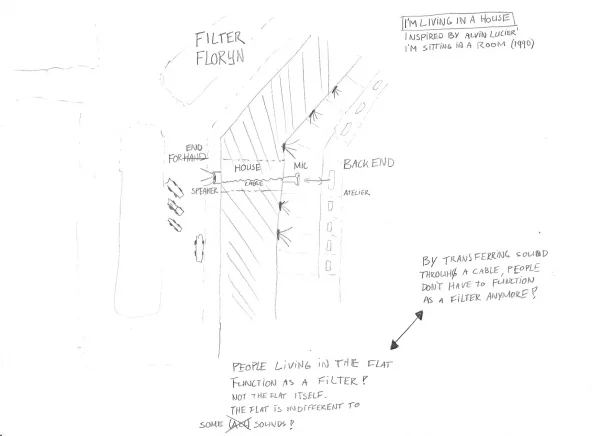 I'M LIVING IN A HOUSE
INSPIRED BY ALVIN LUCIER'
I'M SITTING IN A ROOM (1990)
FILTER
FLORYN
END
FORHAND
HOUSE
MIC
BACK END
SPEAKER
CABLE
ATELIER
BY TRANSFERING SOUND
THROUGH A CABLE, PEOPLE
DON'T HAVE TO FUNCTION
AS A FILTER ANYMORE!
PEOPLE LIVING IN THE FLAT
FUNCTION AS A FILTER!
NOT THE FLAT ITSELF.
THE FLAT IS INDIFFERENT TO
SOME (ALL) SOUNDS!